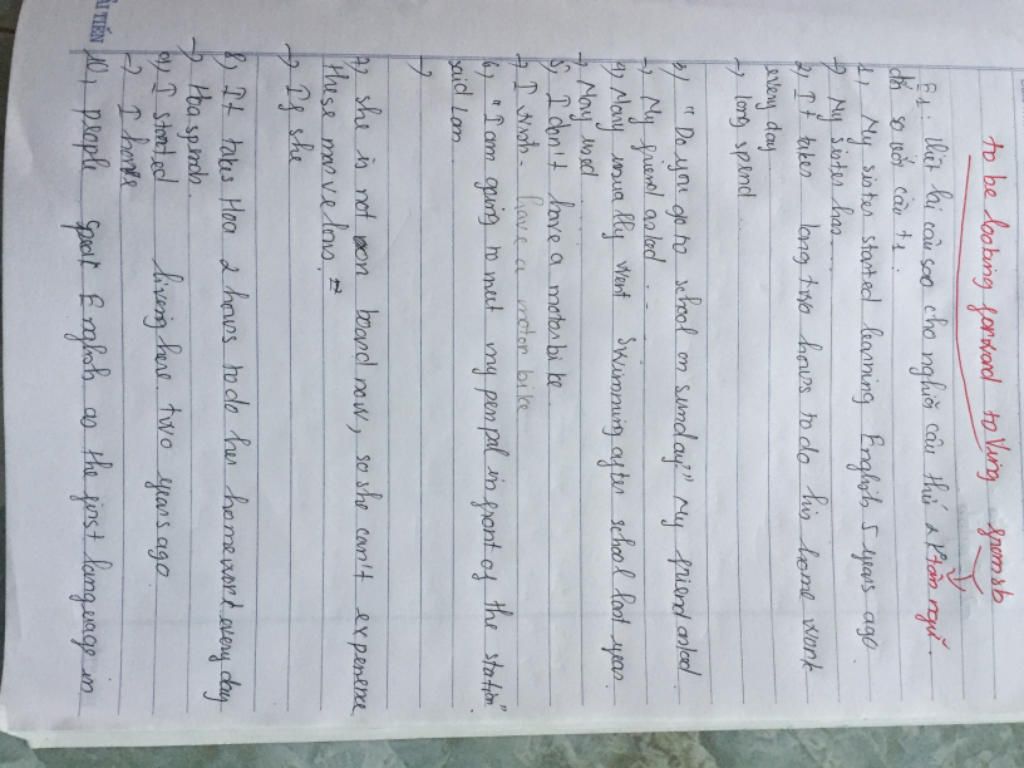 to be looking forward to Ving from sb
E1: Viết lại câu sao cho nghĩa câu thứ 2 k°
tân ngữ.
đổi so với câu t1.
1) My sister started learning English 5 years ago
-) My sister has...
2) It takes long two hours to do his home work
every day
-) long spend...
3) "Do you go to school on sunday." My friend asked.
-) My friend asked...
4) Mary usually went Swimming after school last year.
-) Mary used ......
5) I don't have a motorbike.
-) I wish. have a motor bike
6) "I am going to meet my penpal in front of the station".
said Lan.
-)
7) she is not on board now, so she can't experience
these marvelous.
-) If she
8) It takes Hoa 2 hours to do her homework every day
-) Hoa spends.
9) I started living here two years ago
-) I have
10) people speak English as the first language in
ẢI TIẾN